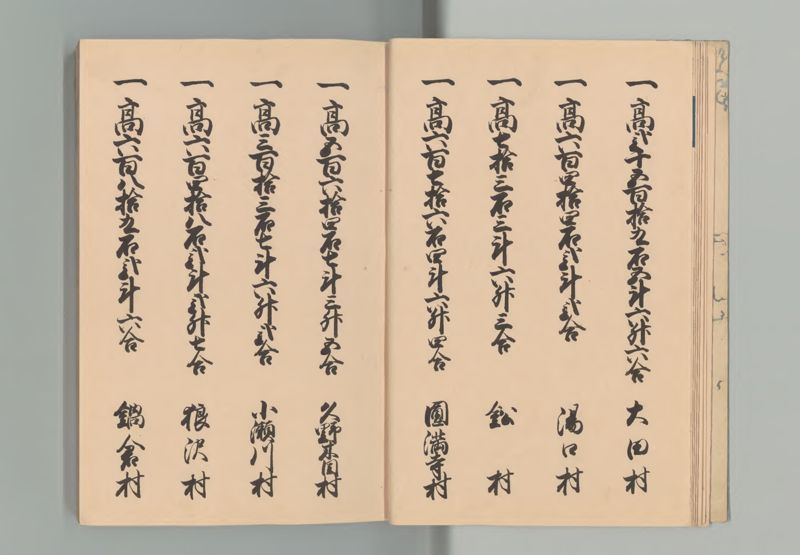 一高弐千五百拾五石五斗六升六合 大田村
一高六百四拾四石弐斗弐合 湯口村
一高七拾三石三斗六升三合 鈆村
一高六百七拾六石四斗六升四合 圓満寺村
一高五百六拾四石七斗三升五合 久野木目村
一高三百拾三石七斗六升弐合 小瀬川村
一高六百四拾八石弐斗弐升七合 狼沢村
一高六百八拾五石弐斗六合 鍋倉村